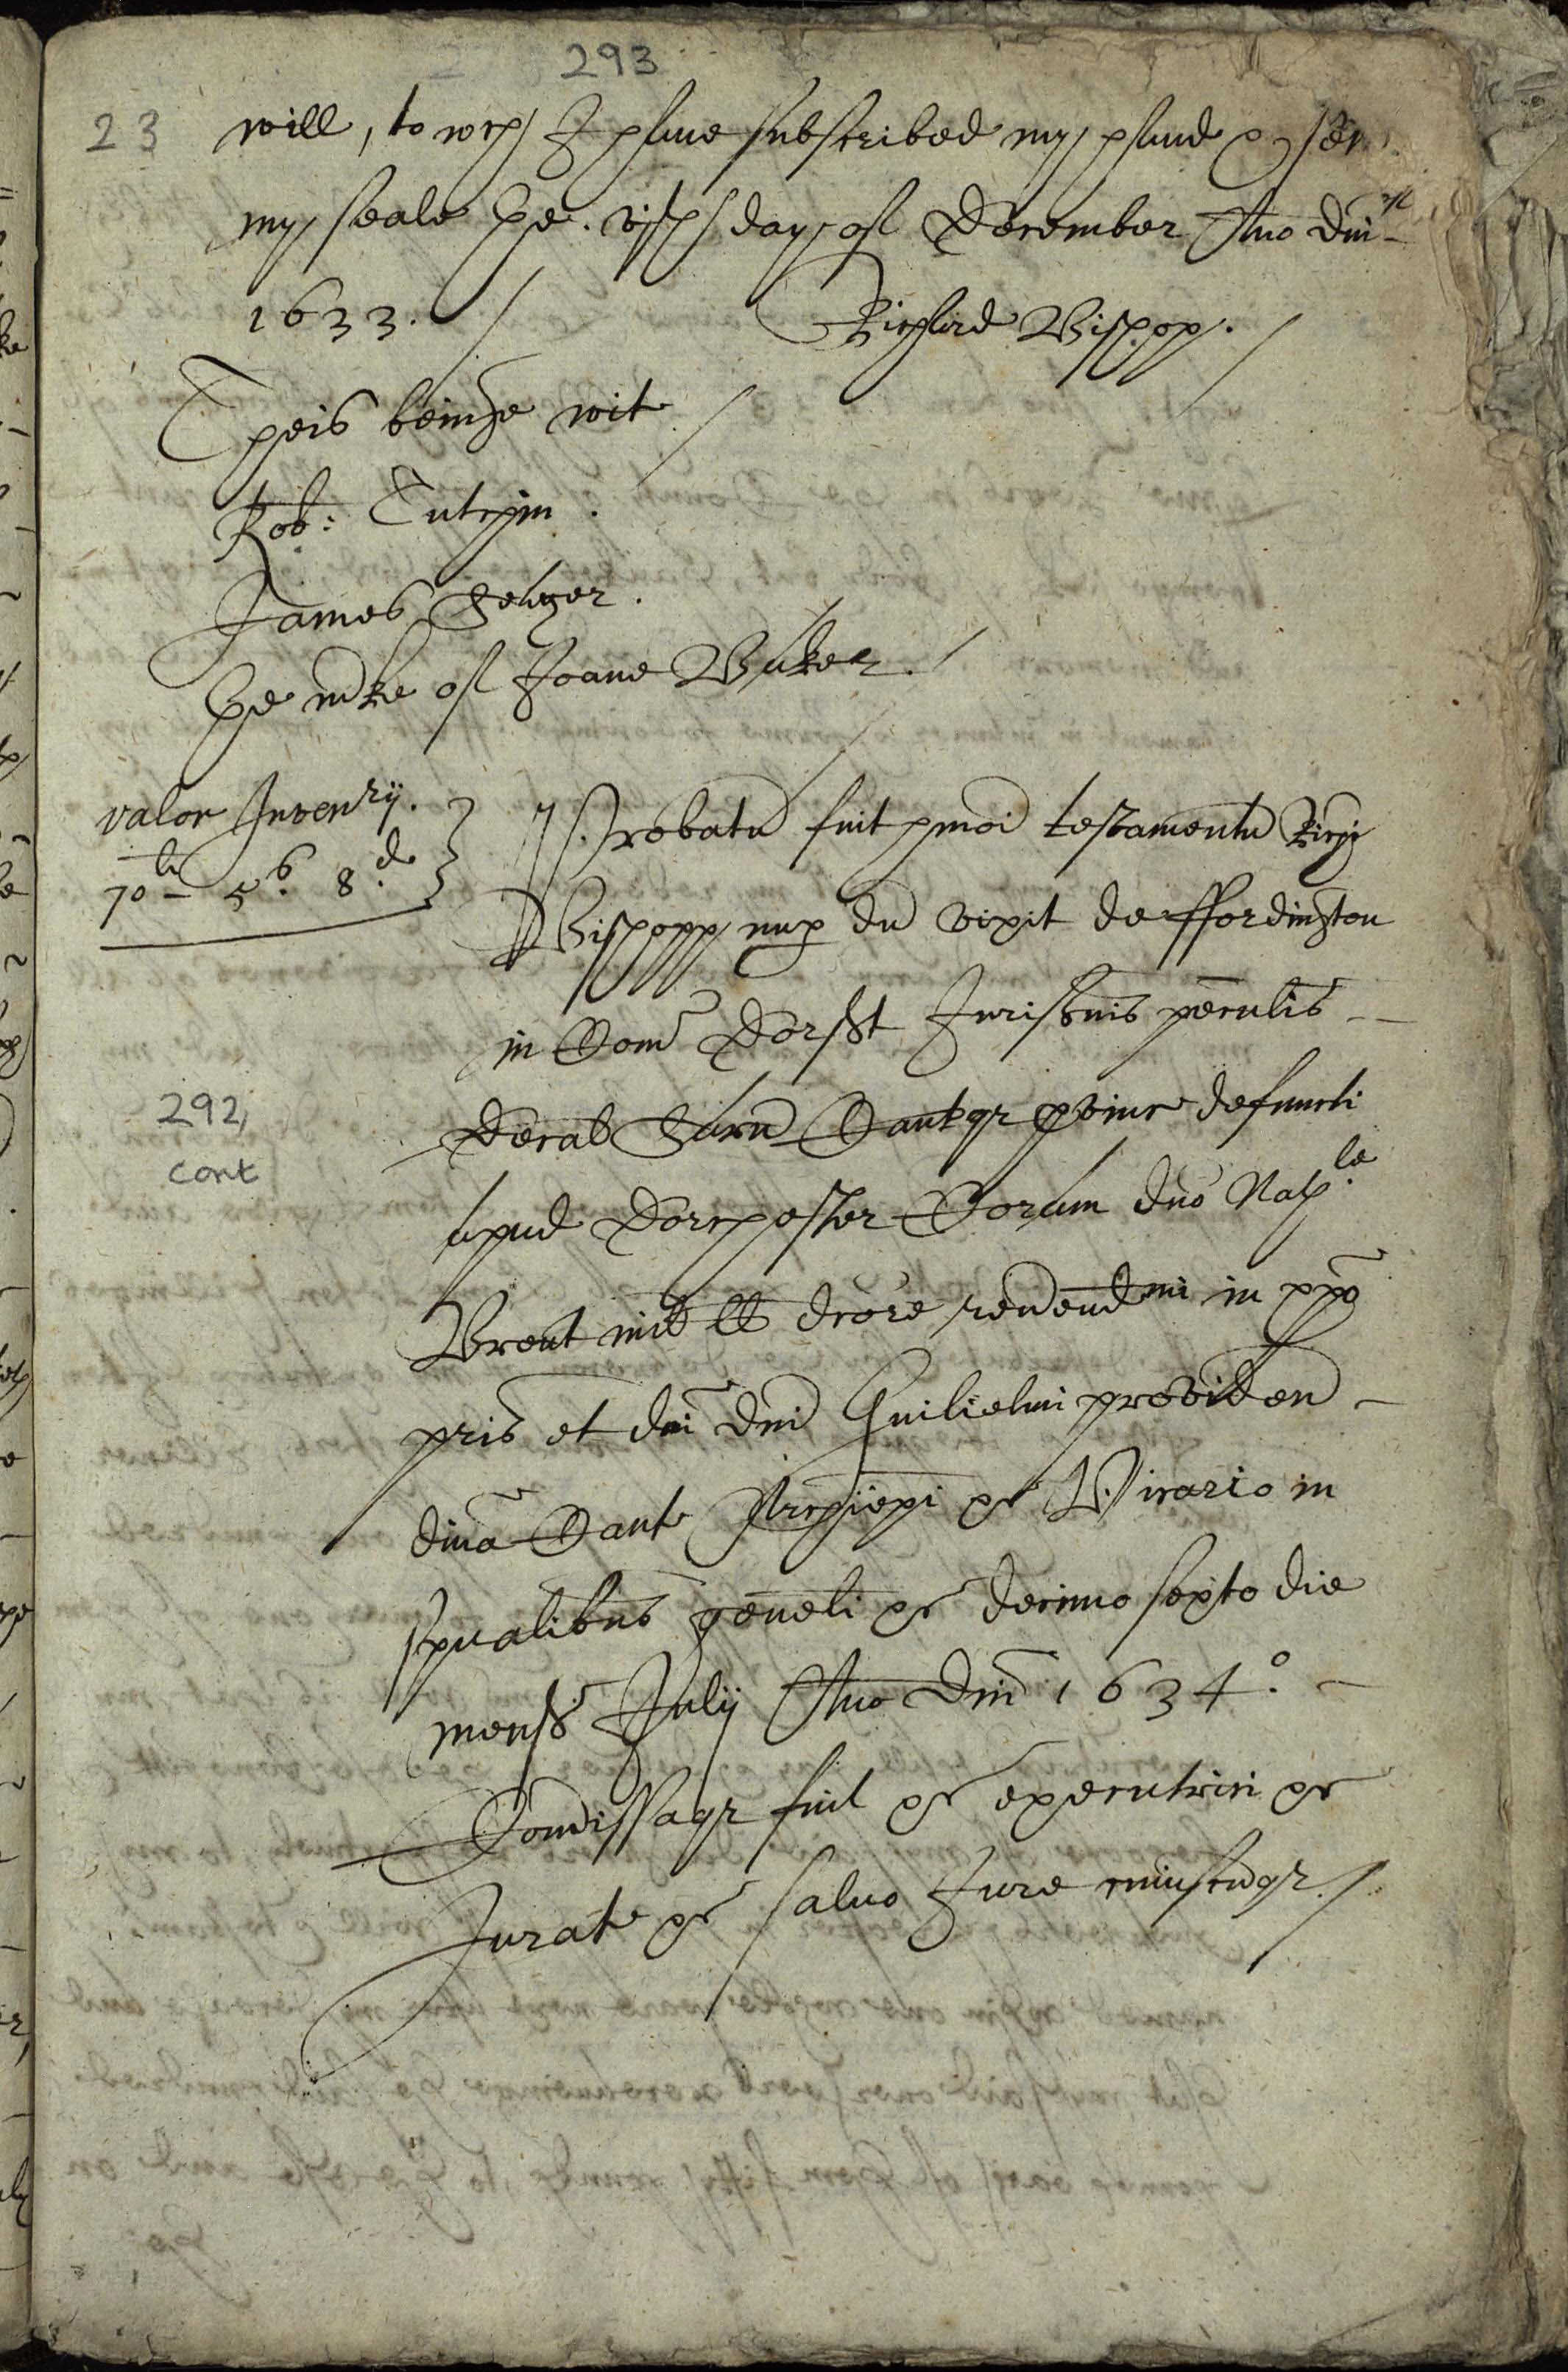 293
23 will, to wch I have subscribed my hand & set
my seale the vjth day of December Ano Dni
1633. Richard Bishop.
Theis beinge wit
Rob: Cutchin.
James
the mrke of Joane Baker.
valor Inventrij.
70li – 5s. 8d.
Probatu fuit hmoi testamentu Richi
Bishopp nup du vixit de ffordington
in Com Dorsst Jurisdnis peculis
Decal Sarū Cantqr pvinc defuncti
apud Dorchester Coram dno Nathle
Brent mit ll dcore reverendmi in xpo
pris et dni dni Guilielmi providen
dina Cant Archiepi &c Vicario in
spualibus generli &c decimo sexto die
mens Julij Ano Dni 1634o.
Comissaqr fuit &c executrici &c
Jurat &c salvo Jure cuiuscuqr
292,
cont